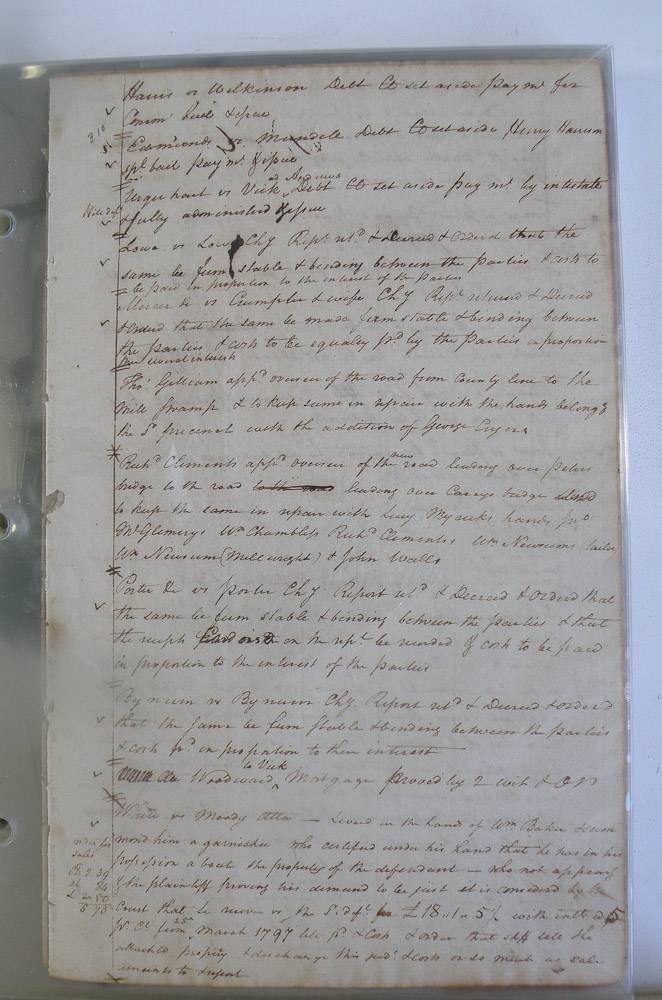 Harris vs Wilkinson Debt CO set aside paym.t for
Comm.n bail & issue
Edmunds vs Mundele Debt CO set aside Henry Harrison
spl bail paym.t & issue
Urquhart vs Vick ad Andrews Debt CO set aside paym.t by intestate
& fully administred & issue
Lowe vs Lowe Chy Rept. ret.d & Decreed & Ordered that the
same be firm stable & binding between the parties & costs to
be paid in proportion to the interest of the Parties
Mercer &c vs Crumpler & wife Chy Rept. returned & Decreed
& Ordered that the same be made firm stable & binding between
the parties & costs to be equaley pd by the parties in proportion
their several interests
Tho.s Gilliam app.d overseer of the road from County line to the
Mill Swamp & to keep same in repair with the hands belong.g
the s.d precinct with the addition of George
Rich.d Clements app.d overseer of the new road leading over peters
bridge to the road to the road leading over Careys bridge
to keep the same in repair with Lucy Myricks hands Jn.o
McGlemery Wm Chambliss Rich.d Clements Wm Newsums
Wm Newsum (Millwright) & John Walls
Porter &c vs Porter Chy Report ret.d & Decreed & Ordered that
the same be firm stable & binding between the parties & that
the receipts Endorsed on the rep.t be recorded & costs to be paid
in proportion to the interest of the parties
Bynum vs Bynum Chy. Report ret.d & Decreed & ordered
that the same be firm stable & binding between the parties
& costs pd. in proportion to their interest
Woodward to Vick Mortgage proved by 2 wit & OR
White vs Moody Atta — Levied in the hands of Wm. Baker & sum
mond him a garnishee who certified under his hand that he has in his
possession about the property of the defendant — who not appearg
& the plaintiff proving his demand to be just it is considered by the
order for
sales
Court that he recover vs the s.d def.t £18..1..5½ with int. @ 5
pr. Ct. from 25 March 1797 till pd. & costs & order that shff sell the
attached property & discharge this jud.t & costs or so much as sale
amounts to & report